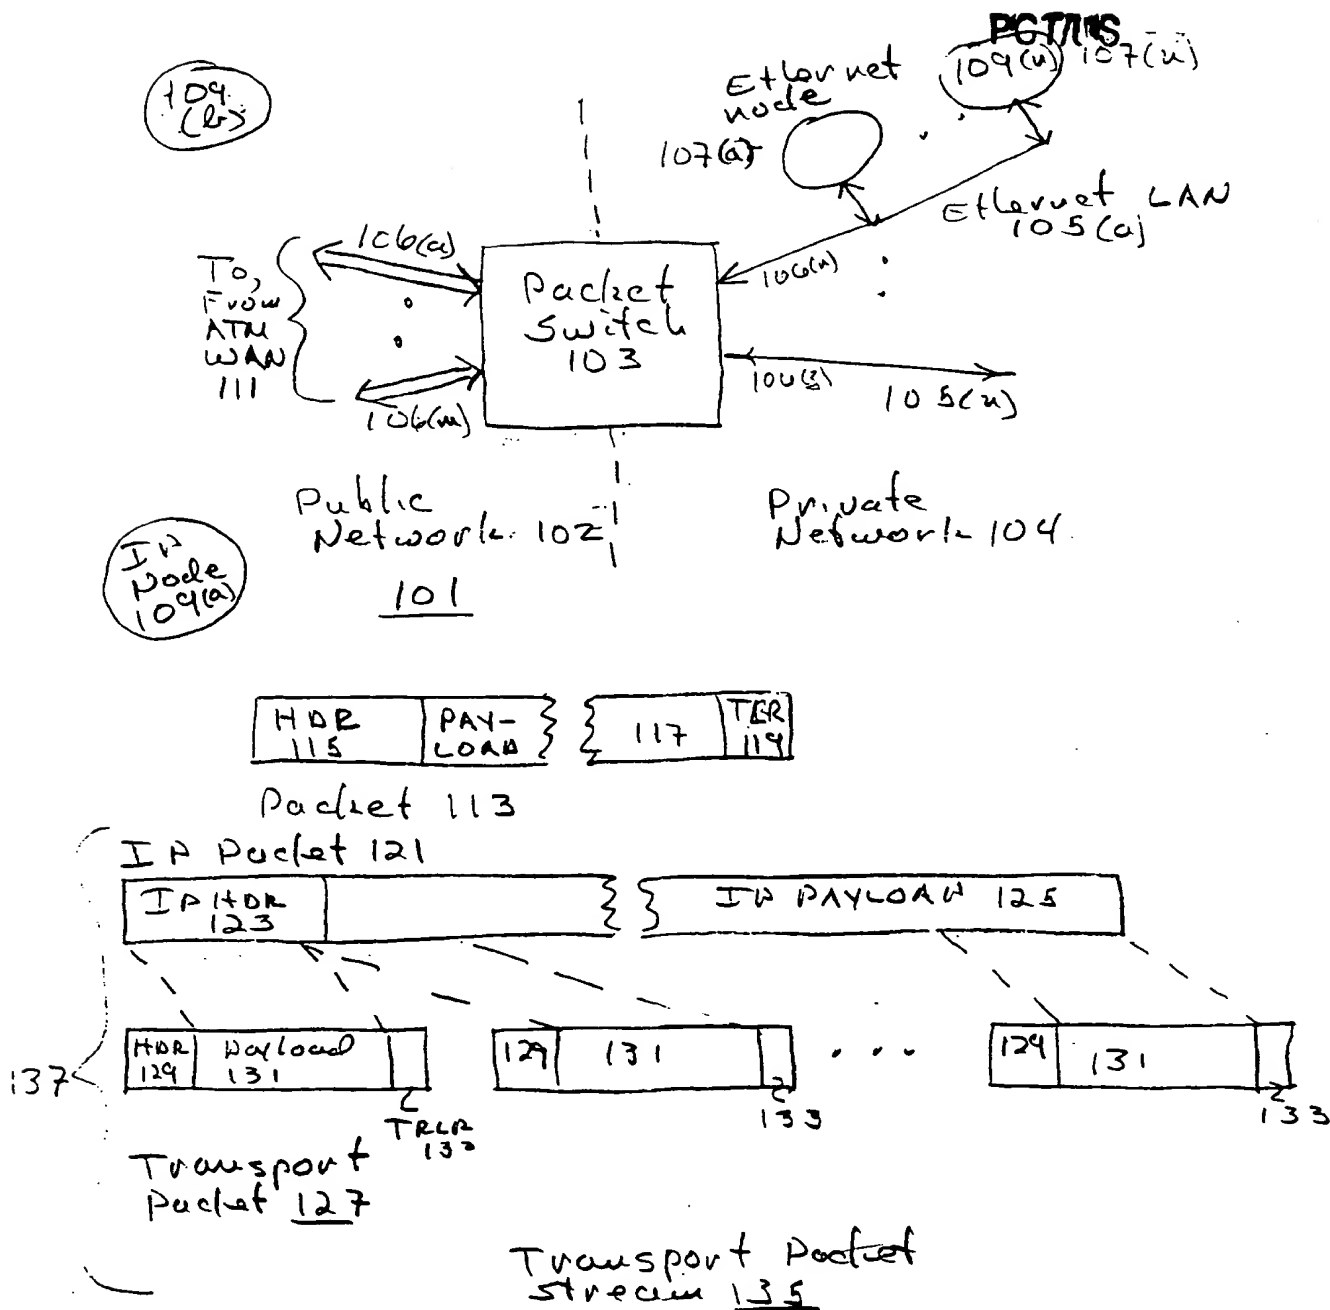 PCT/US
109
(b)
Ethernet
node
107(a)
109(n) 107(n)
Ethernet LAN
105(a)
106(a)
To,
From
ATM
WAN
111
Packet
Switch
103
106(n)
106(m)
105(n)
Public
Network 102
Private
Network 104
101
IP
Node
109(a)
HDR
115
PAY-
LOAD
117
TLR
119
Packet 113
IP Packet 121
IP HDR
123
IP PAYLOAD 125
HDR
129
Payload
131
129
131
129
131
137
TRLR
133
133
133
Transport
Packet 127
Transport Packet
stream 135